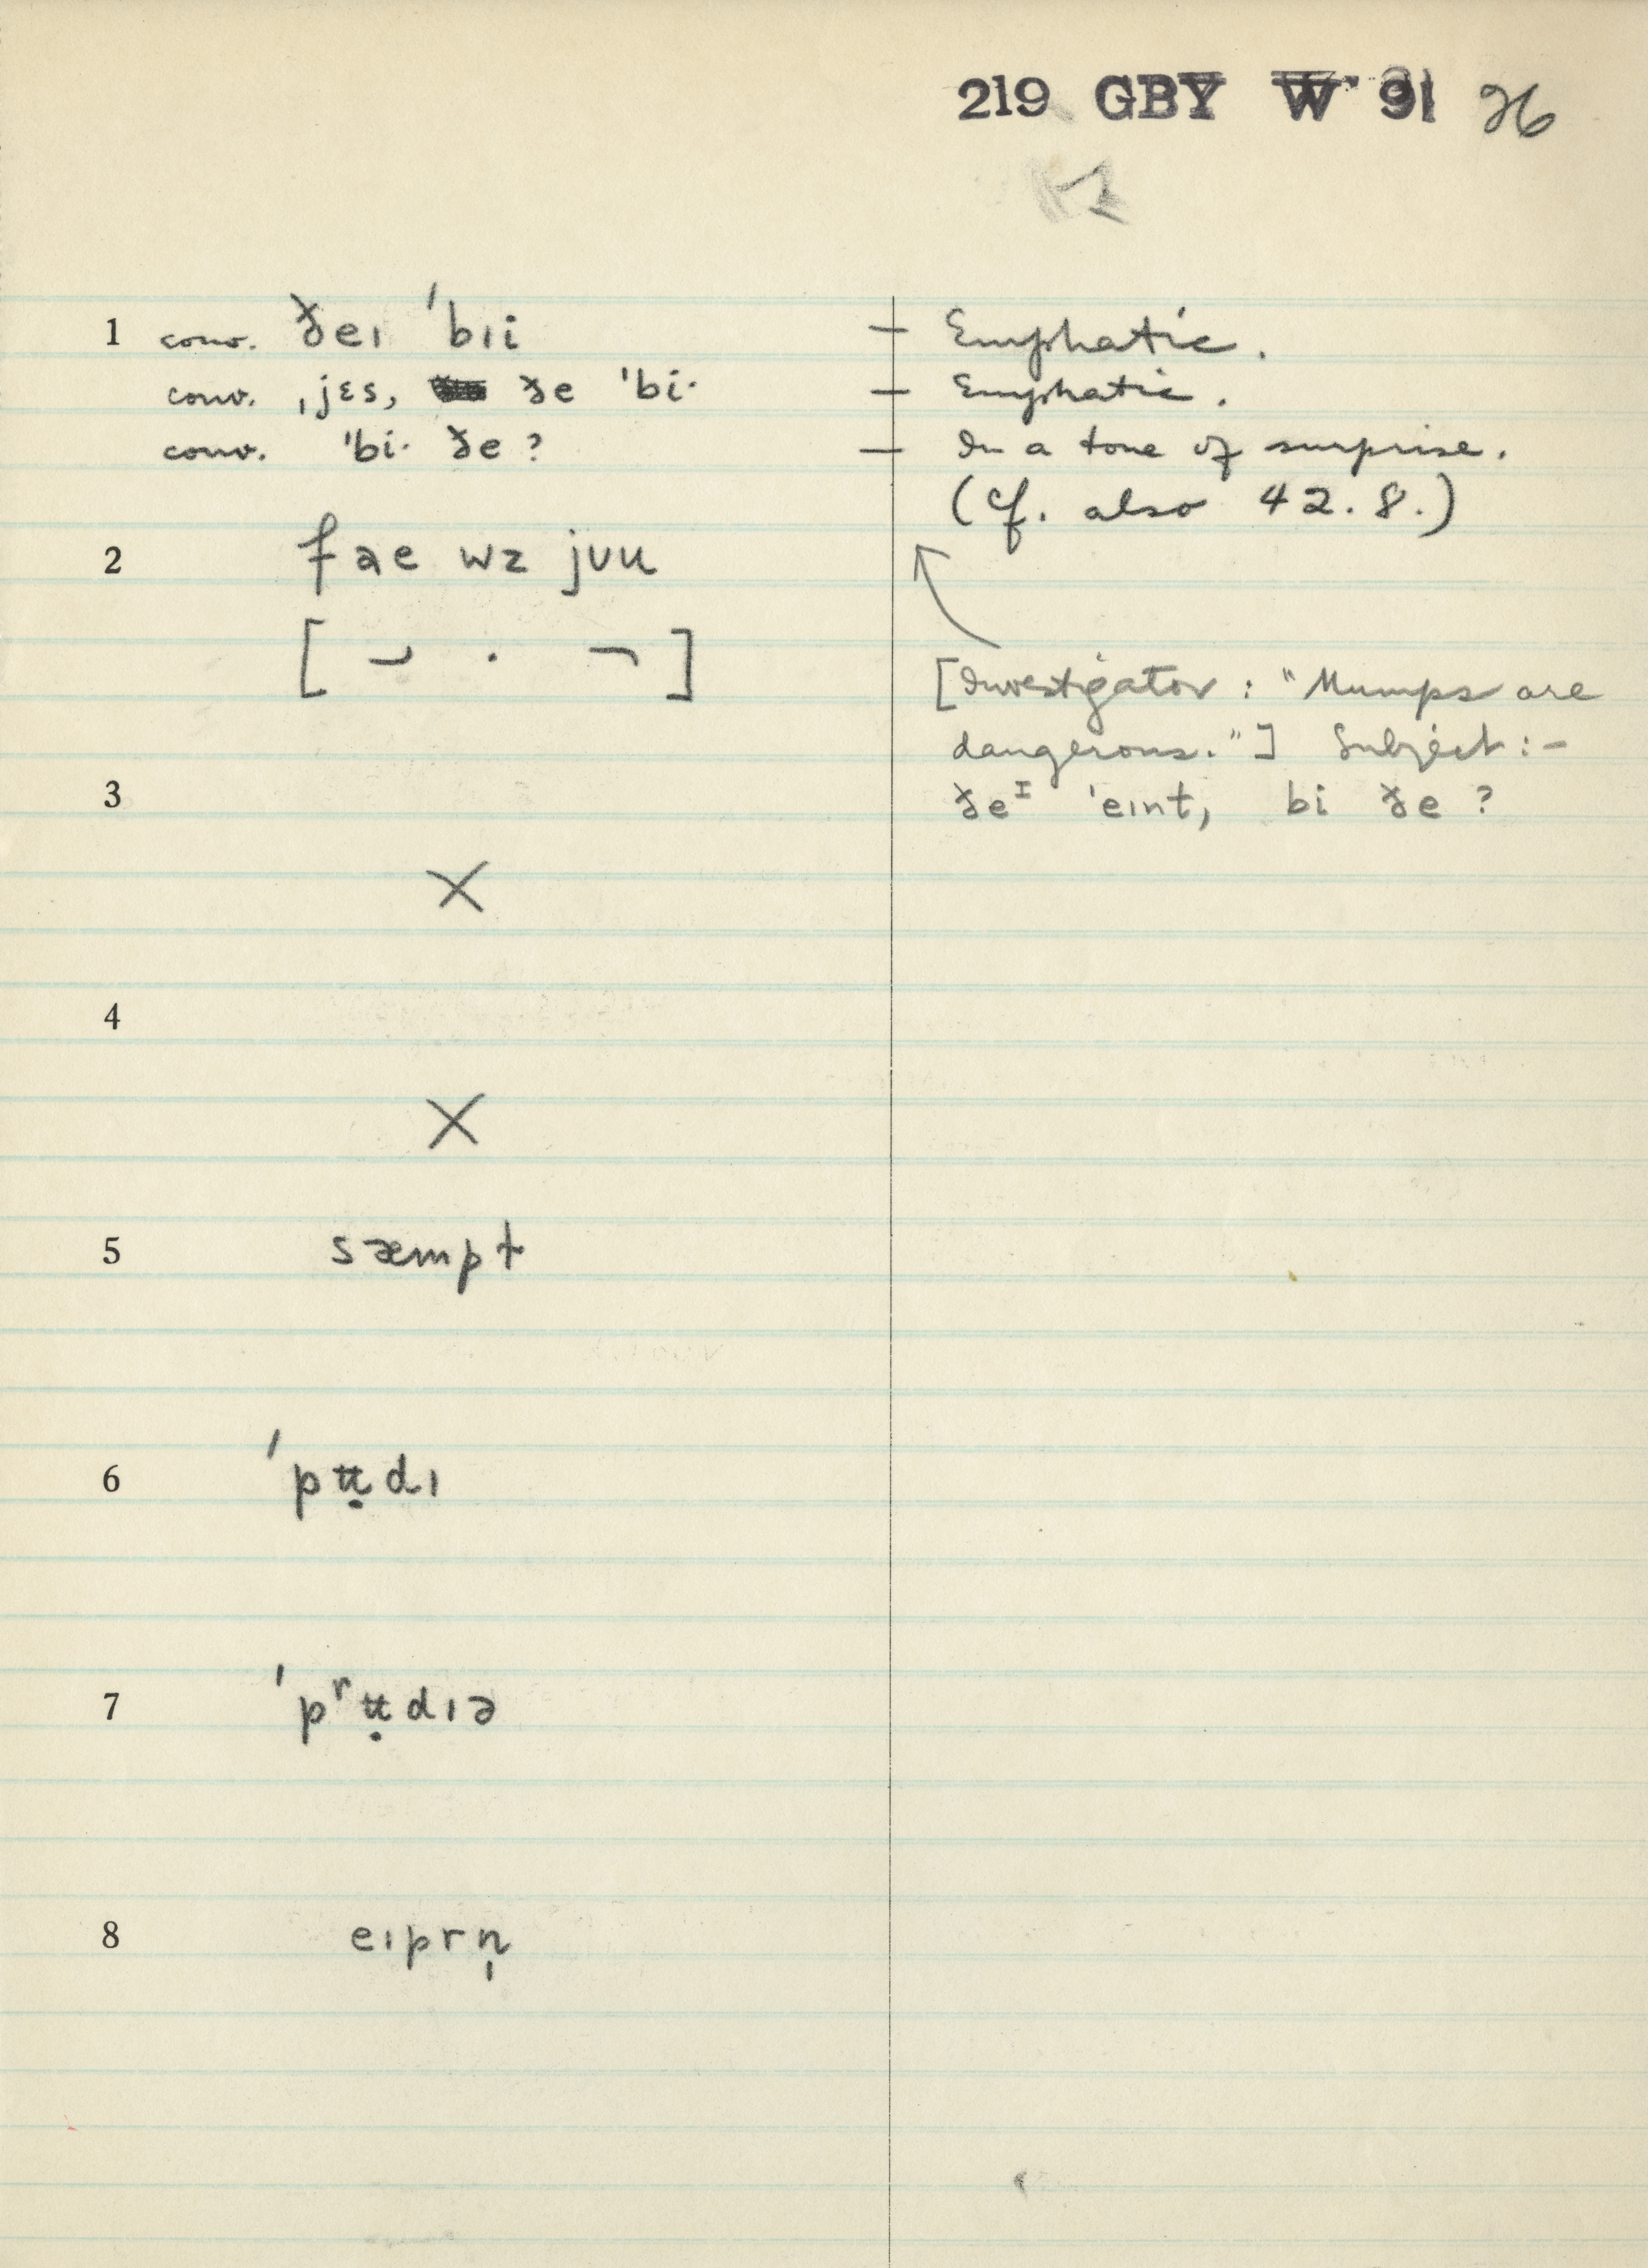 219 GBY W 91 26
1 conv. ðeɪ ˈbɪi — Emphatic.
conv. ˌjɛs, ðe ˈbi· — Emphatic.
conv. ˈbi· ðe? — In a tone of surprise.
(Cf. also 42.8.)
2 f ae wz jʊu
[Investigator: "Mumps are
dangerous."] Subject:-
ðeᴵ ˈeɪnt, bi ðe?
3
X
4
X
5 sæmpt
6 ˈpʉ̣dɪ
7 ˈpʳʉ̣dɪə
8 eɪprn̩